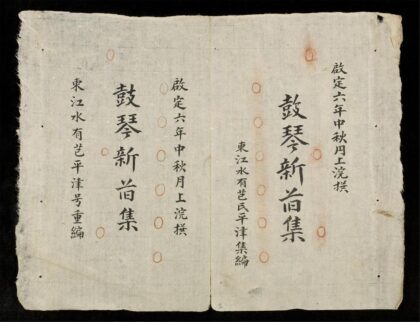 啟定六年中秋月上浣撰
鼓琴新首集
東江水有芑氏平津集編
啟定六年中秋月上浣撰
鼓琴新首集
東江水有芑平津号重編